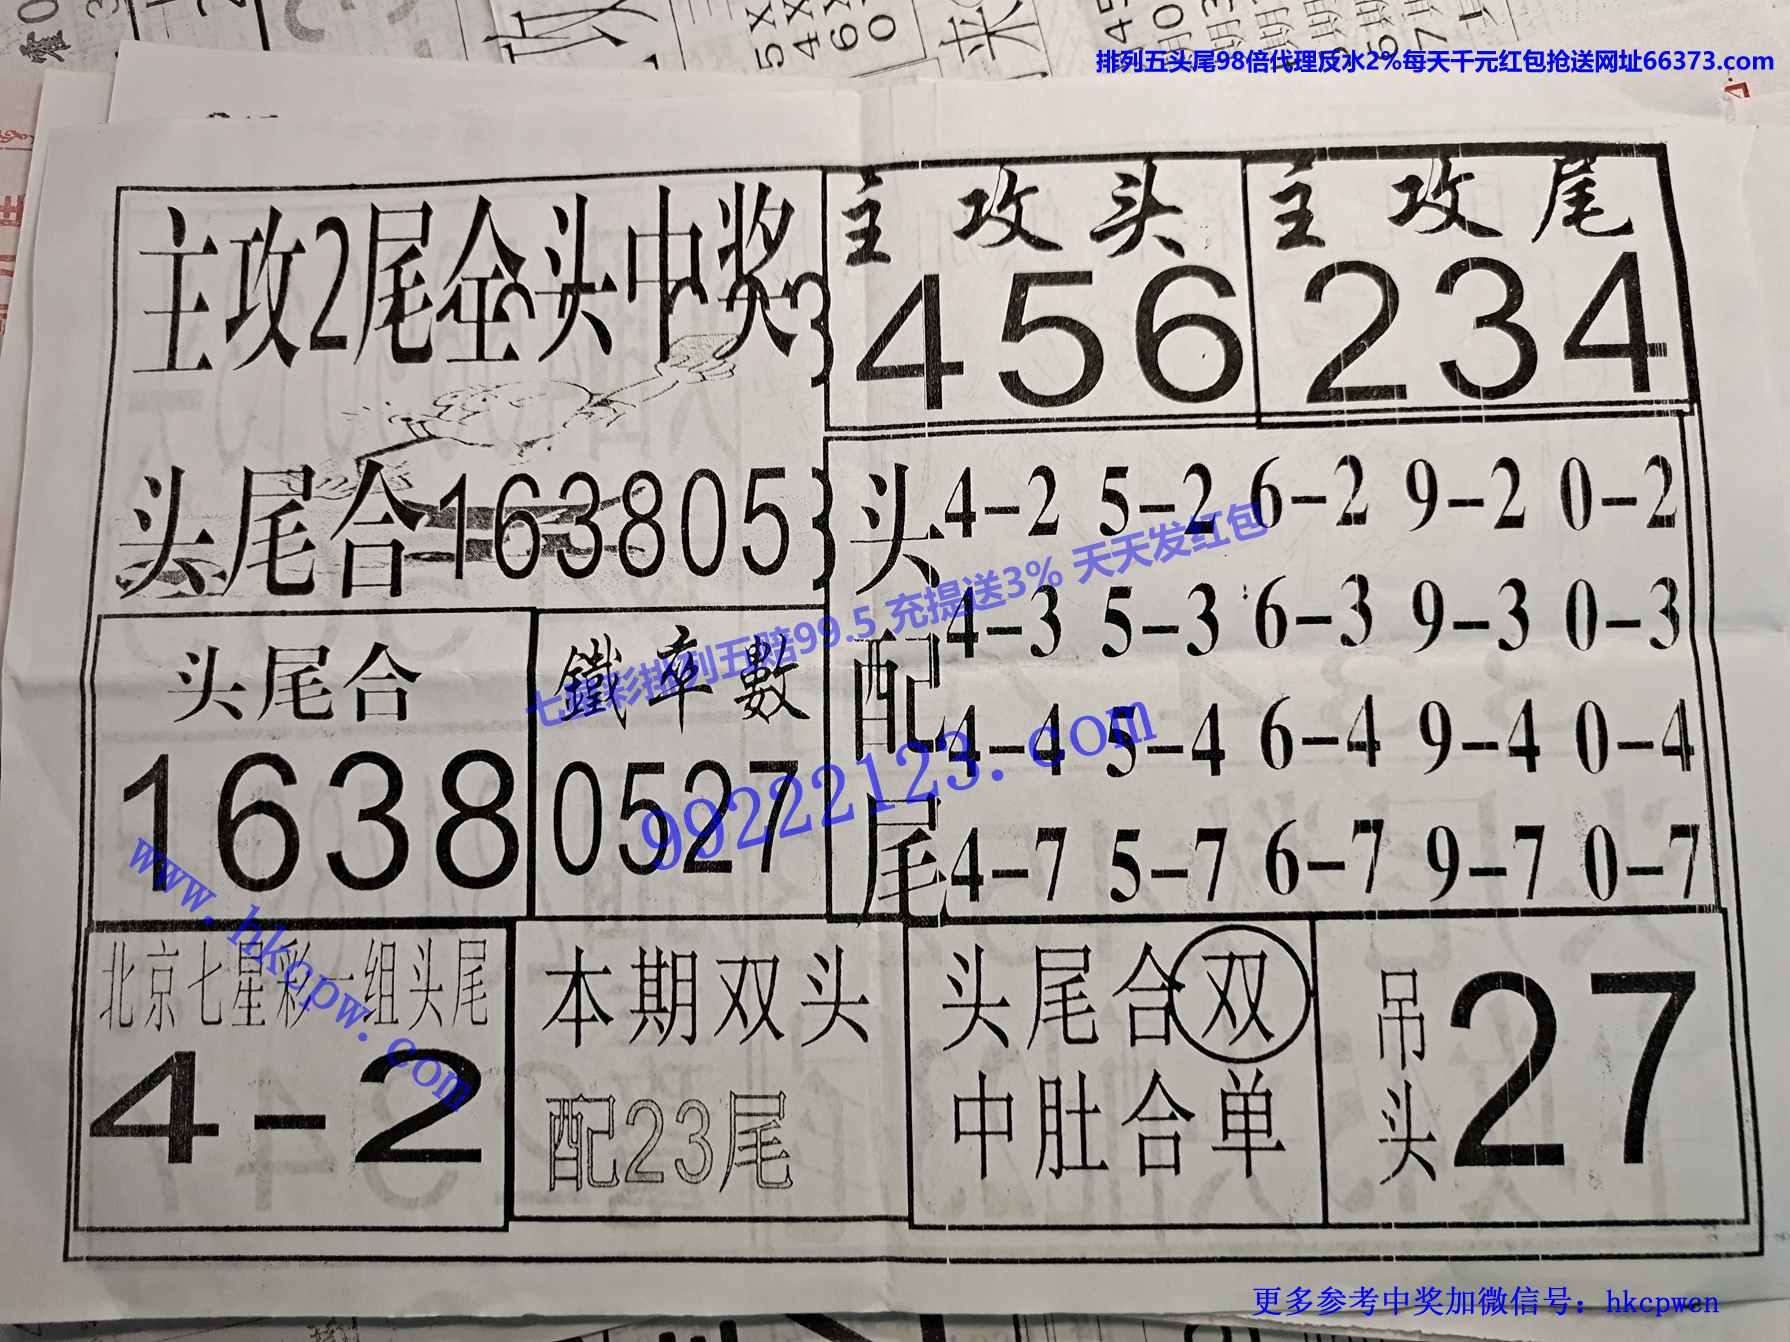 排列五头尾98倍代理反水2%每天千元红包抢送网址66373.com
主攻2尾全头中奖
主攻头
456
主攻尾
234
头尾合163805
头配尾
4-2 5-2 6-2 9-2 0-2
4-3 5-3 6-3 9-3 0-3
4-4 5-4 6-4 9-4 0-4
4-7 5-7 6-7 9-7 0-7
头尾合
1638
鐵卒數
0527
七星彩排列五赔99.5 充提送3% 天天发红包
99222123.com
www.hkcpw.com
北京七星彩一组头尾
4-2
本期双头
配23尾
头尾合双
中肚合单
吊头
27
更多参考中奖加微信号：hkcpwcn